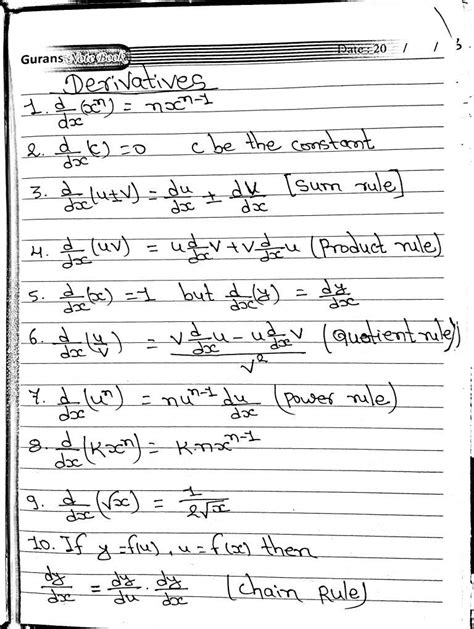 Gurans Note Book Date: 20 / /
Derivatives
1. d/dx (xⁿ) = nxⁿ⁻¹
2. d/dx (c) = 0 c be the constant
3. d/dx (u±v) = du/dx ± dv/dx [Sum rule]
4. d/dx (uv) = u d/dx v + v d/dx u (Product rule)
5. d/dx (x) = 1 but d/dx (y) = dy/dx
6. d/dx (u/v) = (v d/dx u - u d/dx v)/v² (Quotient rule)
7. d/dx (uⁿ) = nuⁿ⁻¹ du/dx (Power rule)
8. d/dx (Kxⁿ) = K·nxⁿ⁻¹
9. d/dx (√x) = 1/2√x
10. If y = f(u), u = f(x) then
dy/dx = dy/du · dy/dx (Chain Rule)